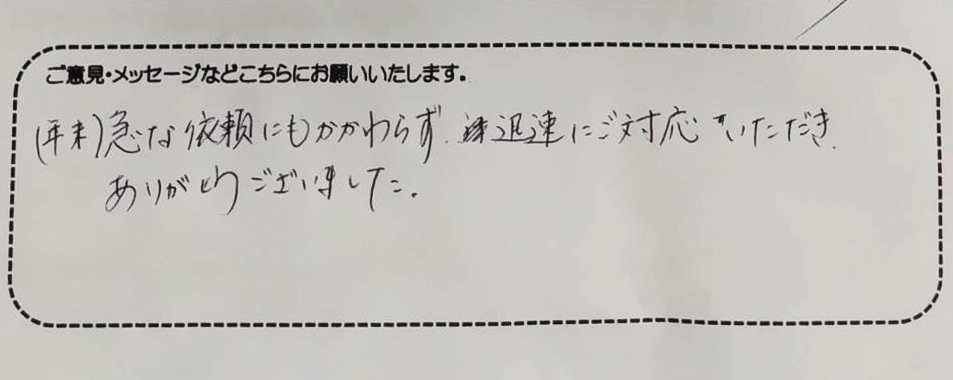 ご意見・メッセージなどこちらにお願いいたします。
(年末)急な依頼にもかかわらず、迅速にご対応いただき、
ありがとうございました。